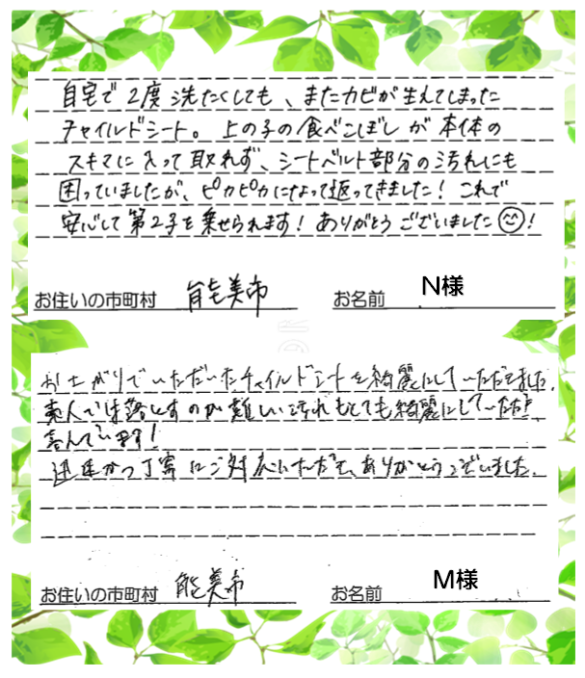 自宅で2度洗たくしても、またカビが生えてしまった
チャイルドシート。上の子の食べこぼしが本体の
スキマに入って取れず、シートベルト部分の汚れにも
困っていましたが、ピカピカになって返ってきました！これで
安心して第2子を乗せられます！ありがとうございました😊！
お住いの市町村 能美市 お名前 N様
お下がりでいただいたチャイルドシートを綺麗にしていただきました。
素人では落とすのが難しい汚れもとても綺麗にしていただき
喜んでいます！
迅速かつ丁寧にご対応いただき、ありがとうございました。
お住いの市町村 能美市 お名前 M様